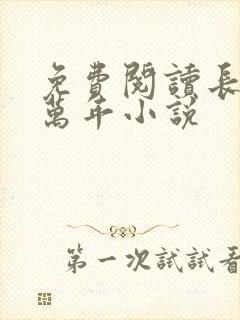 免費閱讀長
萬年小說
第一次試試看